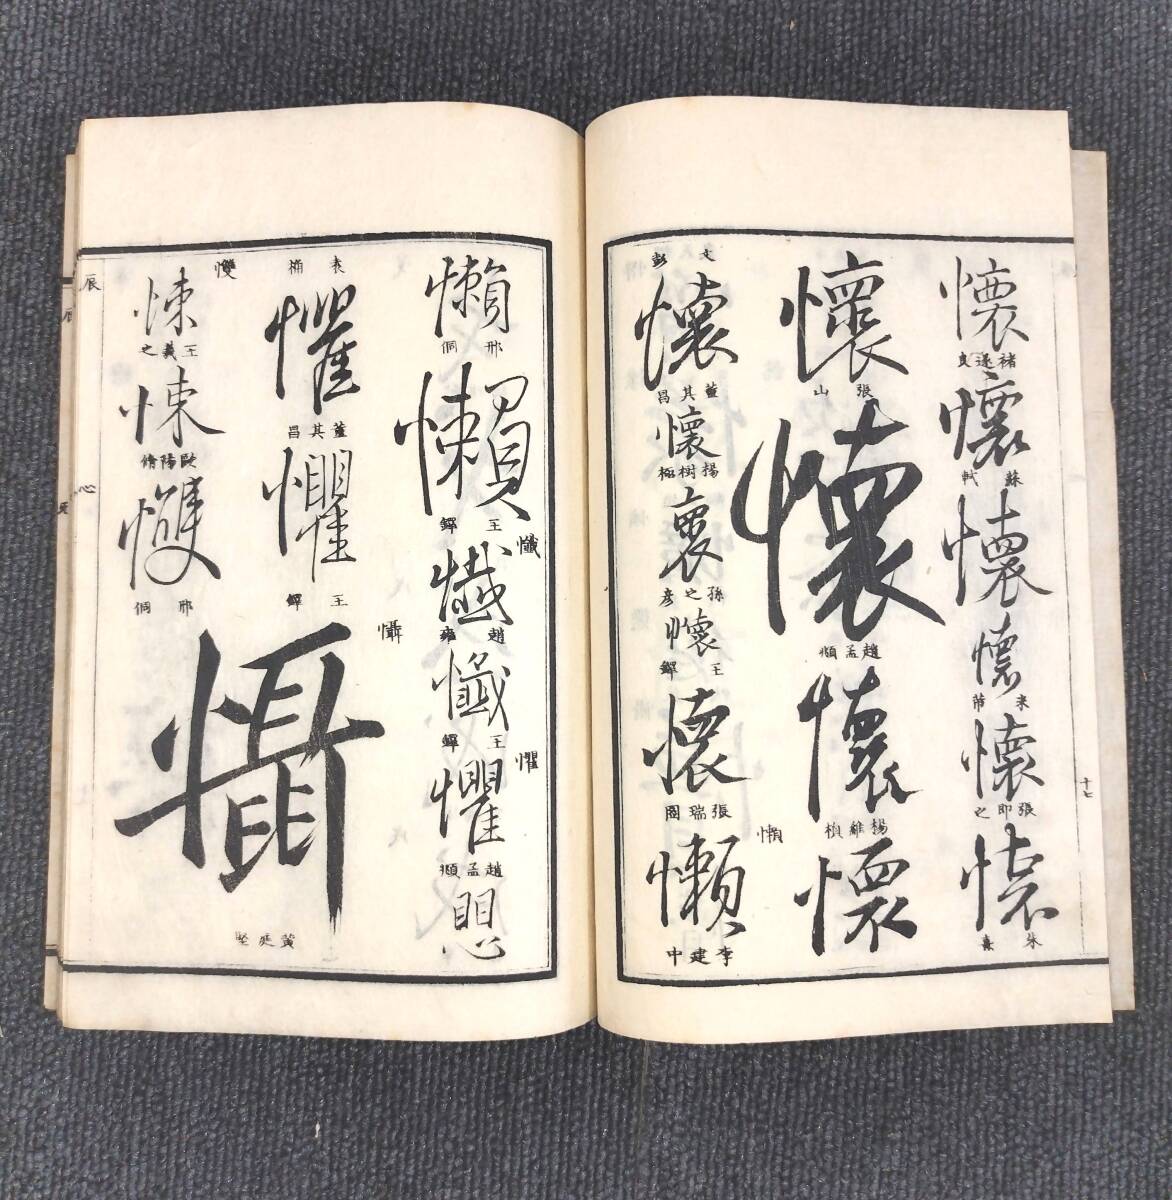 懷
褚遂良
懷
蘇軾
懷
懷
米芾
懷
張即之
懷
朱熹
懷
張山
懷
趙孟頫
懷
楊維楨
懷
文彭
懷
董其昌
懷
楊樹極
褱
孫之彥
懷
王鐸
懷
張瑞圖
懶
懶
李建中
十七
懶
邢侗
懶
王鐸
懺
懺
趙雍
懺
王鐸
懼
懼
趙孟頫
思
袁桷
懼
董其昌
懼
王鐸
懾
懾
黃庭堅
悚
王羲之
悚
歐陽脩
㦼
邢侗
辰
心